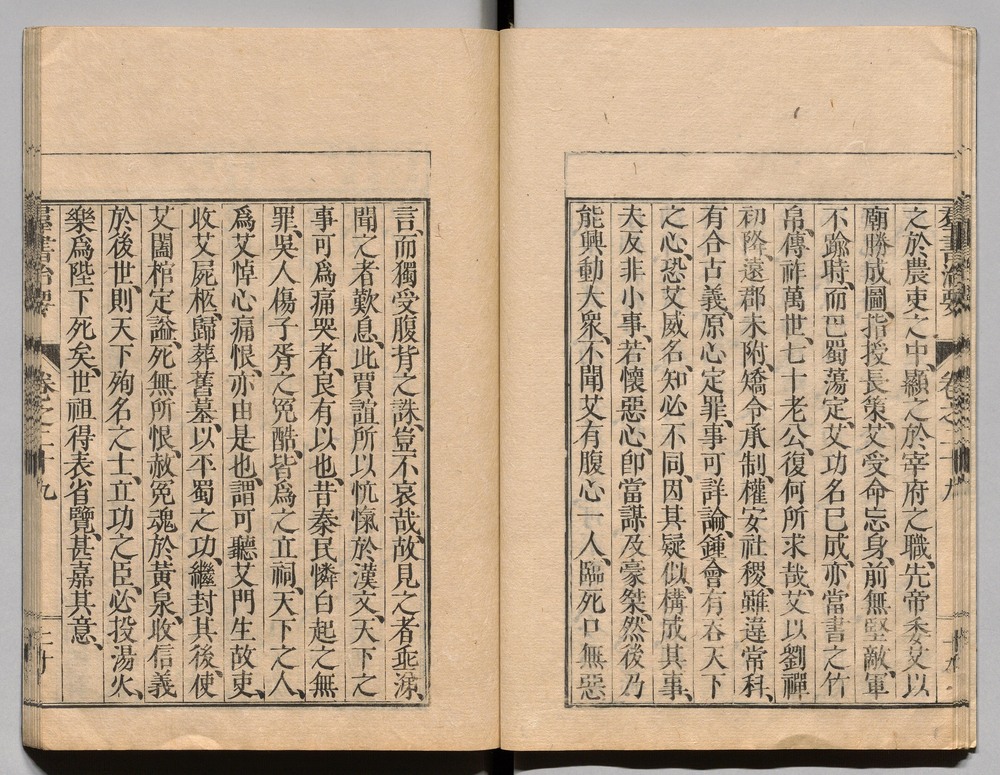 之於農吏之中、顯之於宰府之職、先帝委艾以
廟勝成圖、指授長策、艾受命忘身、前無堅敵、軍
不踰時、而巴蜀蕩定、艾功名已成、亦當書之竹
帛、傳祚萬世、七十老公、復何所求哉、艾以劉禪
初降、遠郡未附、矯令承制、權安社稷、雖違常科、
有合古義、原心定罪、事可詳論、鍾會有吞天下
之心、恐艾威名、知必不同、因其疑似、構成其事、
夫反非小事、若懷惡心、卽當謀及豪桀、然後乃
能興動大衆、不聞艾有腹心一人、臨死口無惡
言、而獨受腹背之誅、豈不哀哉、故見之者垂涕、
聞之者歎息、此賈誼所以忼愾於漢文、天下之
事可爲痛哭者、良有以也、昔秦民憐白起之無
罪、吳人傷子胥之冤酷、皆爲之立祠、天下之人、
爲艾悼心痛恨、亦由是也、謂可聽艾門生故吏、
收艾屍柩、歸葬舊墓、以平蜀之功、繼封其後、使
艾闔棺定謚、死無所恨、赦冤魂於黃泉、收信義
於後世、則天下殉名之士、立功之臣、必投湯火、
樂爲陛下死矣、世祖得表省覽、甚嘉其意、
羣書治要 卷之二十九 二十